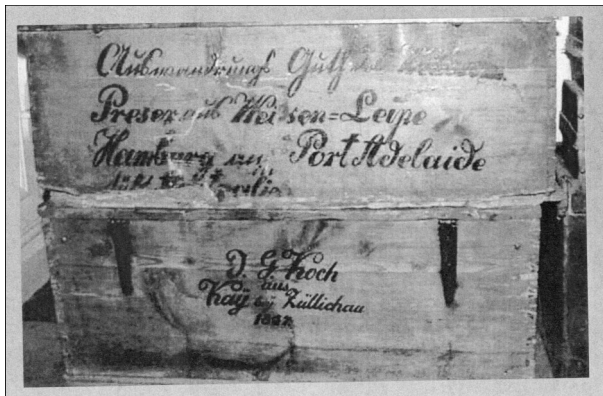 Auswandrungs Guth
Preser aus Weisen=Leipe
Hamburg Port Adelaide
J. G. Koch
aus
Kaÿ beÿ Züllichau